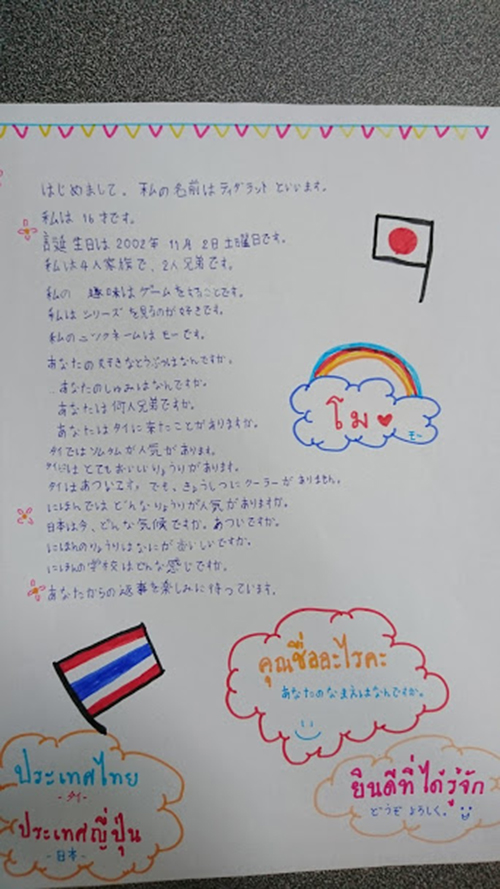 はじめまして。私の名前はティグラットといいます。
私は 16才です。
誕生日は 2002年 11月 2日 土曜日です。
私は4人家族で、2人兄弟です。
私の 趣味はゲームをすることです。
私は シリーズ を見るのが好きです。
私のニックネームは モーです。
あなたの好きなどうぶつはなんですか。
あなたのしゅみはなんですか。
あなたは何人兄弟ですか。
あなたはタイに来たことがありますか。
タイではソムタムが人気があります。
タイにはとてもおいしいりょうりがあります。
タイはあついです。でも、きょうしつにクーラーがありません。
にほんでは どんなりょうりが人気がありますか。
日本は今、どんな気候ですか。あついですか。
にほんのりょうりはなにがおいしいですか。
にほんの学校はどんな感じですか。
あなたからの返事を楽しみに待っています。
โม
モー
คุณชื่ออะไรคะ
あなたのなまえはなんですか。
ประเทศไทย
-タイ-
ประเทศญี่ปุ่น
-日本-
ยินดีที่ได้รู้จัก
どうぞ よろしく。